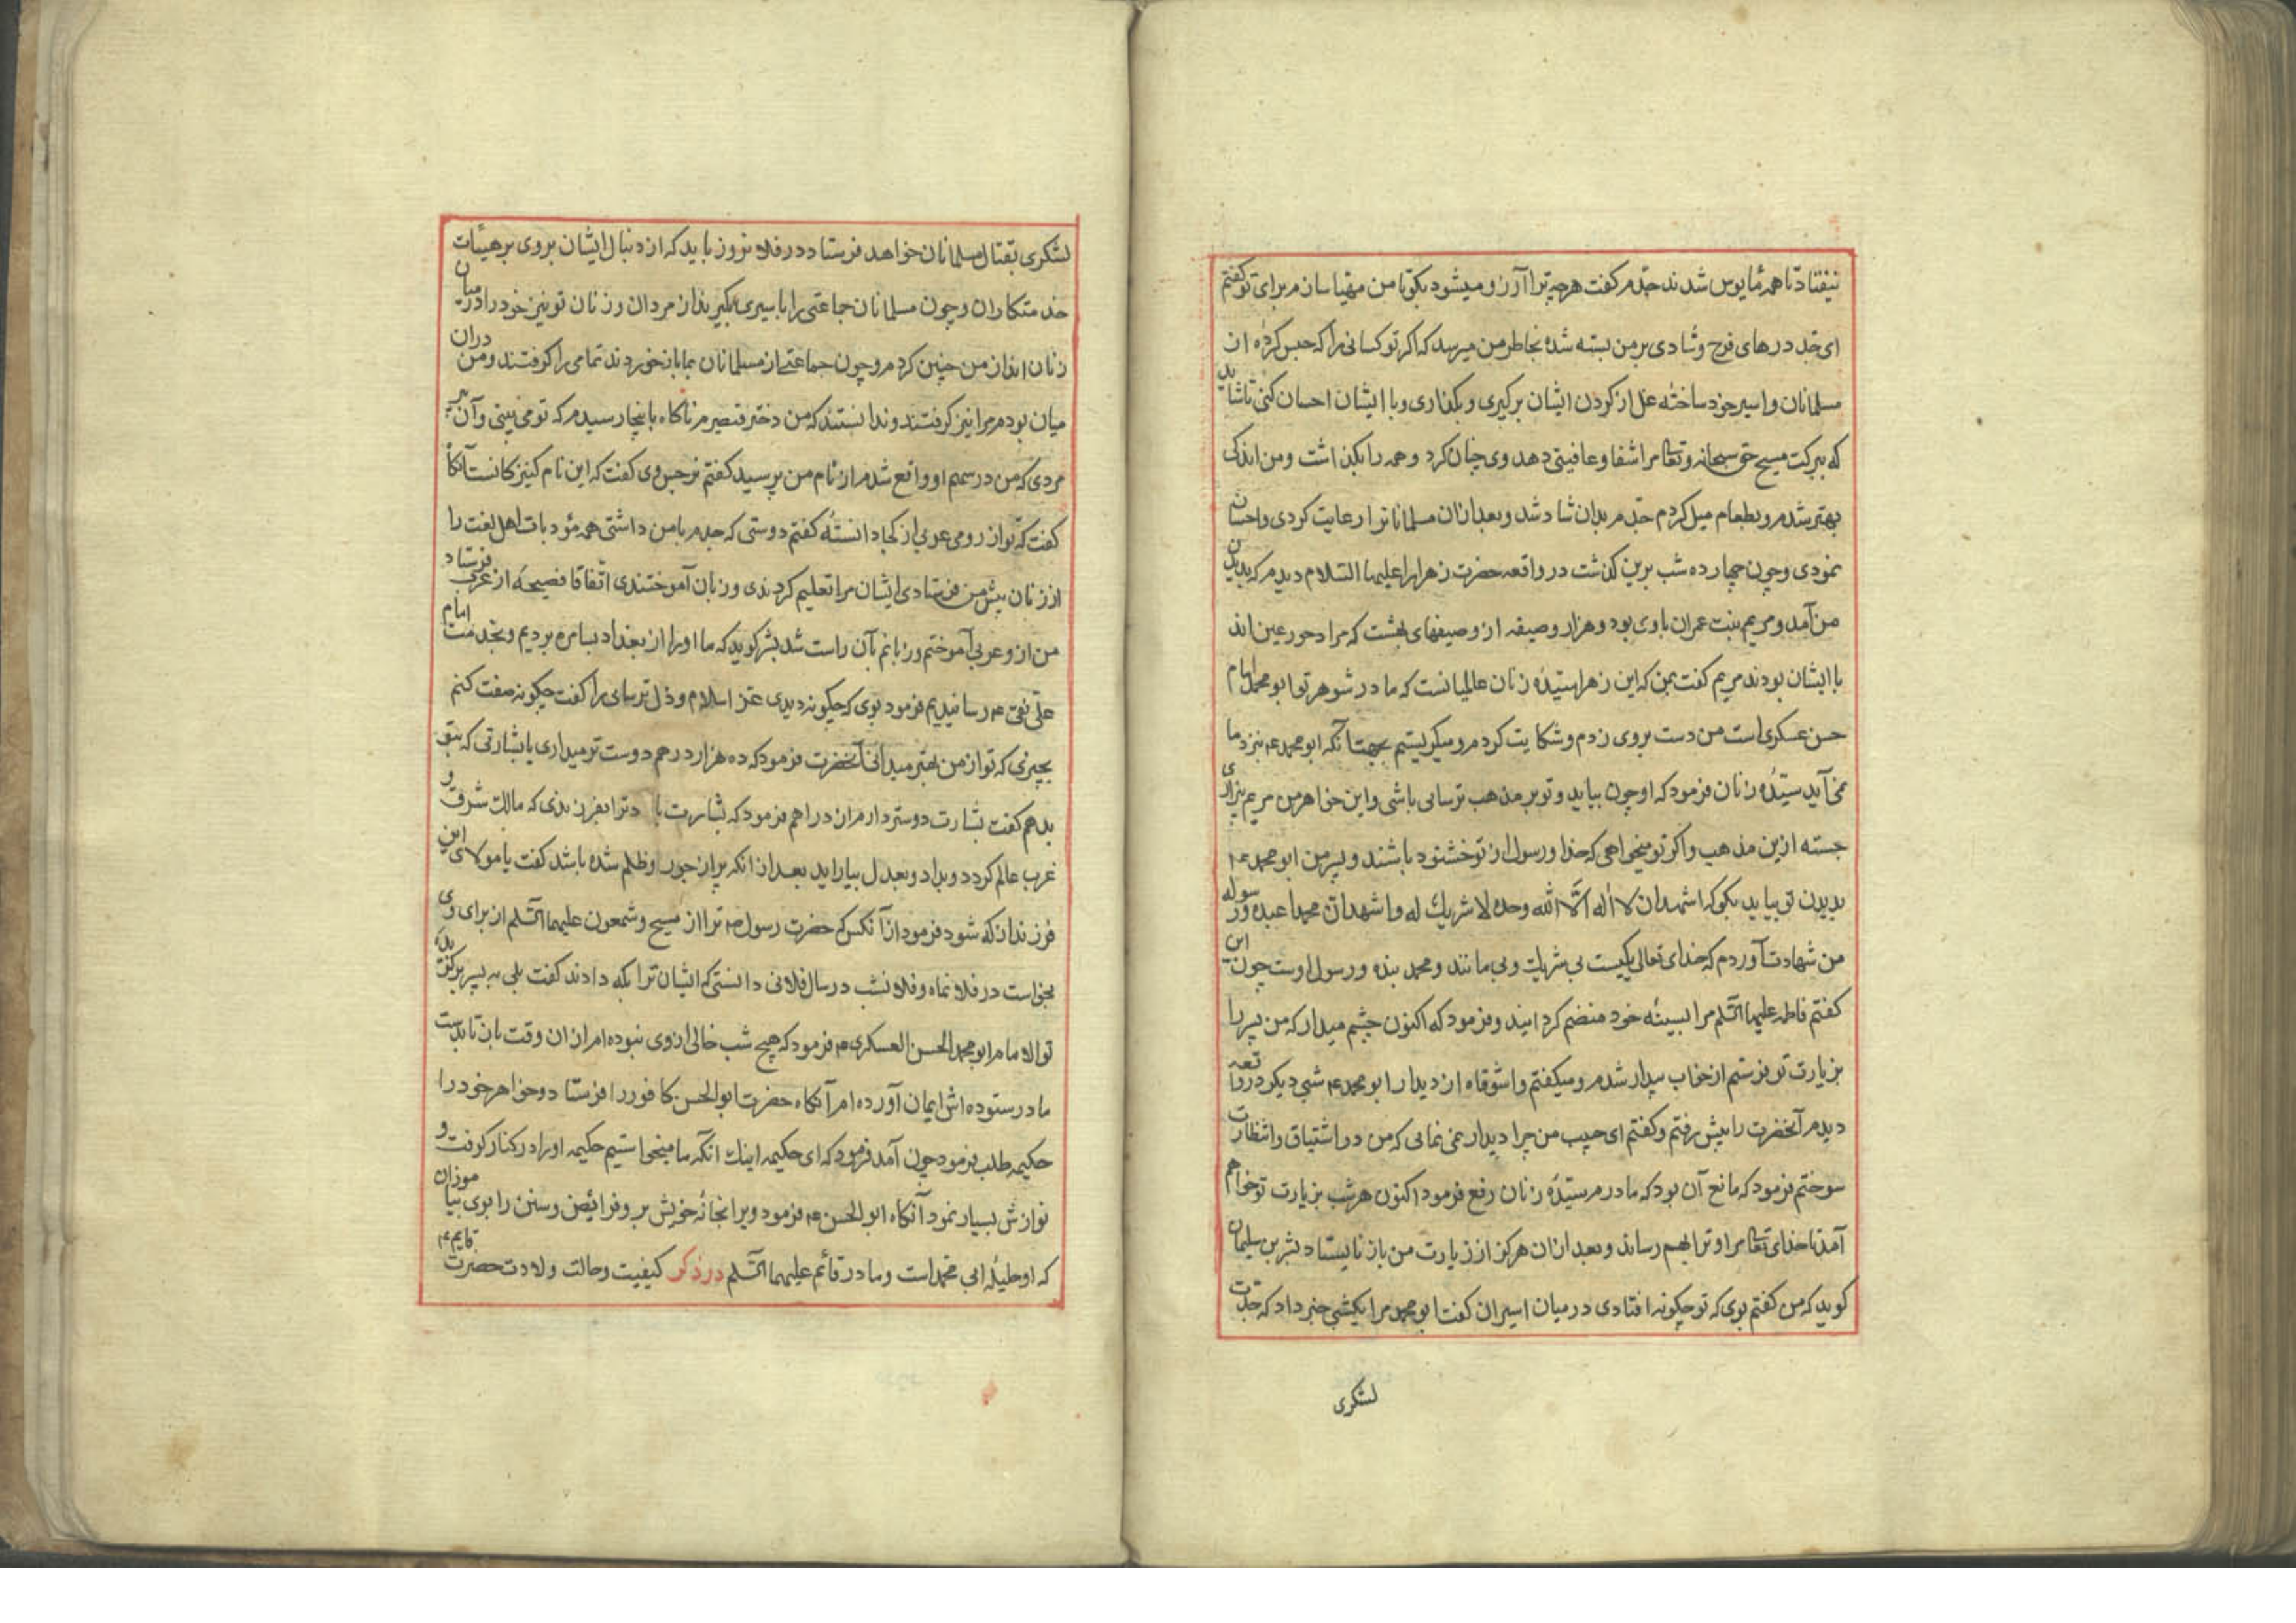 نیفتاد تا همه مأیوس شدند جدم گفت هرچه ترا آرزو میشود بگو تا من مهیا سازم برای تو گفتم
ای جد درهای فرح و شادی بر من بسته شده بخاطر من میرسد که اگر تو کسانی را که حبس کردهٔ از
مسلمانان و اسیر خود ساختهٔ غل از گردن ایشان برگیری و بگذاری و با ایشان احسان کنی تا شاید
که ببرکت مسیح حق سبحانه و تعالی مرا شفا و عافیتی دهد وی چنان کرد و همه را بگذاشت و من اندکی
بهتر شدم و بطعام میل کردم جدم بدان شاد شد و بعد ازان مسلمانانرا رعایت کردی و احسان
نمودی و چون چهارده شب برین گذشت در واقعه حضرت زهرا را علیها السلام دیدم که بدیدن
من آمد و مریم بنت عمران با وی بود و هزار وصیفه از وصیفهای بهشت که مراد حور عین اند
با ایشان بودند مریم گفت بمن که این زهرا سیدهٔ زنان عالمیانست که مادر شوهر تو ابو محمد امام
حسن عسکری است من دست بروی زدم و شکایت کردم و میگریستیم بجهت آنکه ابو محمد ع بنزد ما
نمی آید سیدهٔ زنان فرمود که او چون بیاید و تو بر مذهب ترسائی باشی و این خواهر من مریم بیزاری
جسته ازین مذهب و اگر تو میخواهی که خدا و رسول از تو خشنود باشند و پسر من ابو محمد ع
بدیدن تو بیاید بگو که اشهد ان لا اله الا الله وحده لا شریك له و اشهد ان محمدا عبده و رسوله
من شهادت آوردم که خدای تعالی یکیست بی شریك و بی مانند و محمد بنده و رسول اوست چون این
گفتم فاطمه علیها السلم مرا بسینهٔ خود منضم گردانید و فرمود که اکنون چشم میدار که من پسر را
بزیارت تو فرستم از خواب بیدار شدم و میگفتم واشوقاه از دیدار ابو محمد ع شبی دیگر در واقعه
دیدم آنحضرت را پیش رفتم و گفتم ای حبیب من چرا دیدار نمی نمائی که من در اشتیاق و انتظارت
سوختم فرمود که مانع آن بود که مادرم سیدهٔ زنان رفع فرمود اکنون هر شب بزیارت تو خواهم
آمد تا خدای تعالی مرا و ترا بهم رساند و بعد ازان هرگز از زیارت من باز نایستاد بشر بن سلیمان
گوید که من گفتم بوی که تو چگونه افتادی در میان اسیران گفت ابو محمد مرا یکشبی خبر داد که جدت
لشکری
لشکری بقتال مسلمانان خواهد فرستاد در فلانروز باید که از دنبال ایشان بروی بر هیئات
خدمتکاران و چون مسلمانان جماعتی را باسیری بگیرند از مردان و زنان تو نیز خود را در میان
زنان انداز من چنین کردم و چون جماعتی از مسلمانان بما باز خوردند تمامی را گرفتند و من دران
میان بودم مرا نیز گرفتند و ندانستند که من دختر قیصرم ناگاه باینجا رسیدم که تو می بینی و آن
مردی که من در سهم او واقع شدم از نام من پرسید گفتم نرجس وی گفت که این نام کنیزکانست آنگاه
گفت که تو از رومی عربی از کجا دانستهٔ گفتم دوستی که جدم با من داشتی همه مؤدبات اهل لغت را
از زنان پیش من فرستادی ایشان مرا تعلیم کردندی و زبان آموختندی اتفاقا فصیحهٔ از عرب فرستاد
من از و عربی آموختم و زبانم بآن راست شد بشر گوید که ما او را از بغداد بسامره بردیم و بخدمت امام
علی نقی ع رسانیدیم فرمود بوی که چگونه دیدی عز اسلام و ذل ترسای را گفت چگونه صفت کنم
بچیزی که تو از من بهتر میدانی آنحضرت فرمود که ده هزار درهم دوست تر میداری یا بشارتی که بتو
بدهم گفت بشارت دوستر دارم ازان دراهم فرمود که بشارت باد ترا بفرزندی که مالك شرق و
غرب عالم گردد و بداد و بعدل بیاراید بعد از انکه پر از جور و ظلم شده باشد گفت یا مولای این
فرزند از که شود فرمود از آنکس که حضرت رسول ص ترا از مسیح و شمعون علیهما السلم از برای وی
بخواست در فلانماه و فلانشب در سال فلانی دانستی که ایشان ترا بکه دادند گفت بلی به پسر بزرگوار
تو الامام ابو محمد الحسن العسکری ع فرمود که هیچ شب خالی از وی نبوده ام ازان وقت باز تا بدست
مادر ستوده اش ایمان آورده ام آنگاه حضرت ابو الحسن کافور را فرستاد و خواهر خود را
حکیمه طلب فرمود چون آمد فرمود که ای حکیمه اینك آنکه ما میخواستیم حکیمه او را در کنار گرفت و
نوازش بسیار نمود آنگاه ابو الحسن ع فرمود ویرا بخانهٔ خویش بر و فرائض و سنن را بوی بیاموزان
که او حلیلهٔ ابی محمد است و مادر قائم علیهما السلم در ذکر کیفیت و حالت ولادت حضرت قایم ع